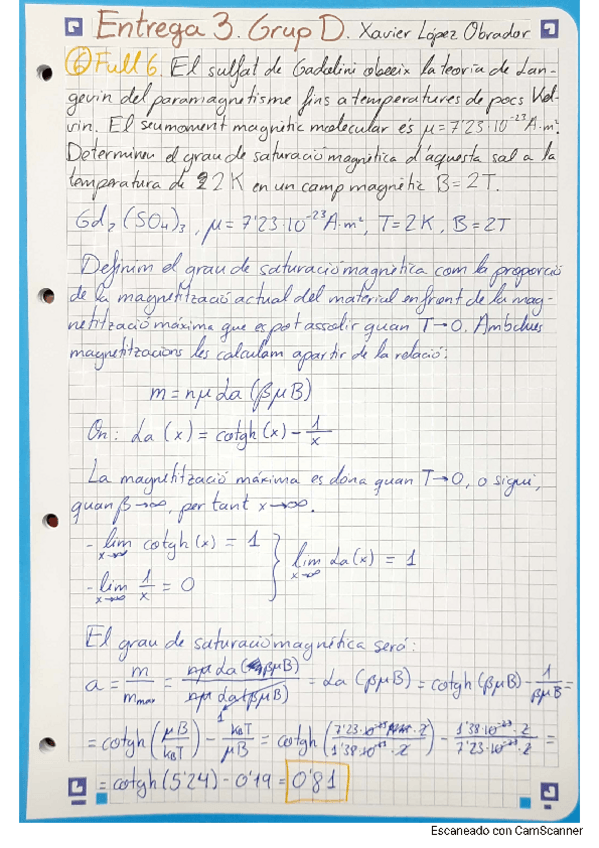 Entrega 3. Grup D. Xavier López Obrador
⑥ Full 6. El sulfat de Gadolini obeeix la teoria de Lan-
gevin del paramagnetisme fins a temperatures de pocs Kel-
vin. El seu moment magnètic molecular és μ=7'23·10⁻²³A·m².
Determineu el grau de saturació magnètica d'aquesta sal a la
temperatura de 2 K en un camp magnètic B=2T.
Gd₂(SO₄)₃, μ=7'23·10⁻²³A·m², T=2K, B=2T
Definim el grau de saturació magnètica com la proporció
de la magnetització actual del material enfront de la mag-
netització màxima que es pot assolir quan T→0. Ambdues
magnetitzacions les calculam a partir de la relació:
m = nμ La (βμB)
On: La (x) = cotgh(x) - 1/x
La magnetització màxima es dóna quan T→0, o sigui,
quan β→∞, per tant x→∞.
- lim x→∞ cotgh(x) = 1
- lim x→∞ 1/x = 0 } lim x→∞ La(x) = 1
El grau de saturació magnètica serà:
a = m/m_max = nμ La(βμB)/nμ La(βμB) 1 = La (βμB) = cotgh(βμB) - 1/βμB =
= cotgh(μB/k_BT) - k_BT/μB = cotgh(7'23·10⁻²³·2/1'38·10⁻²³·2) - 1'38·10⁻²³·2/7'23·10⁻²³·2 =
= cotgh(5'24) - 0'19 = 0'81
Escaneado con CamScanner